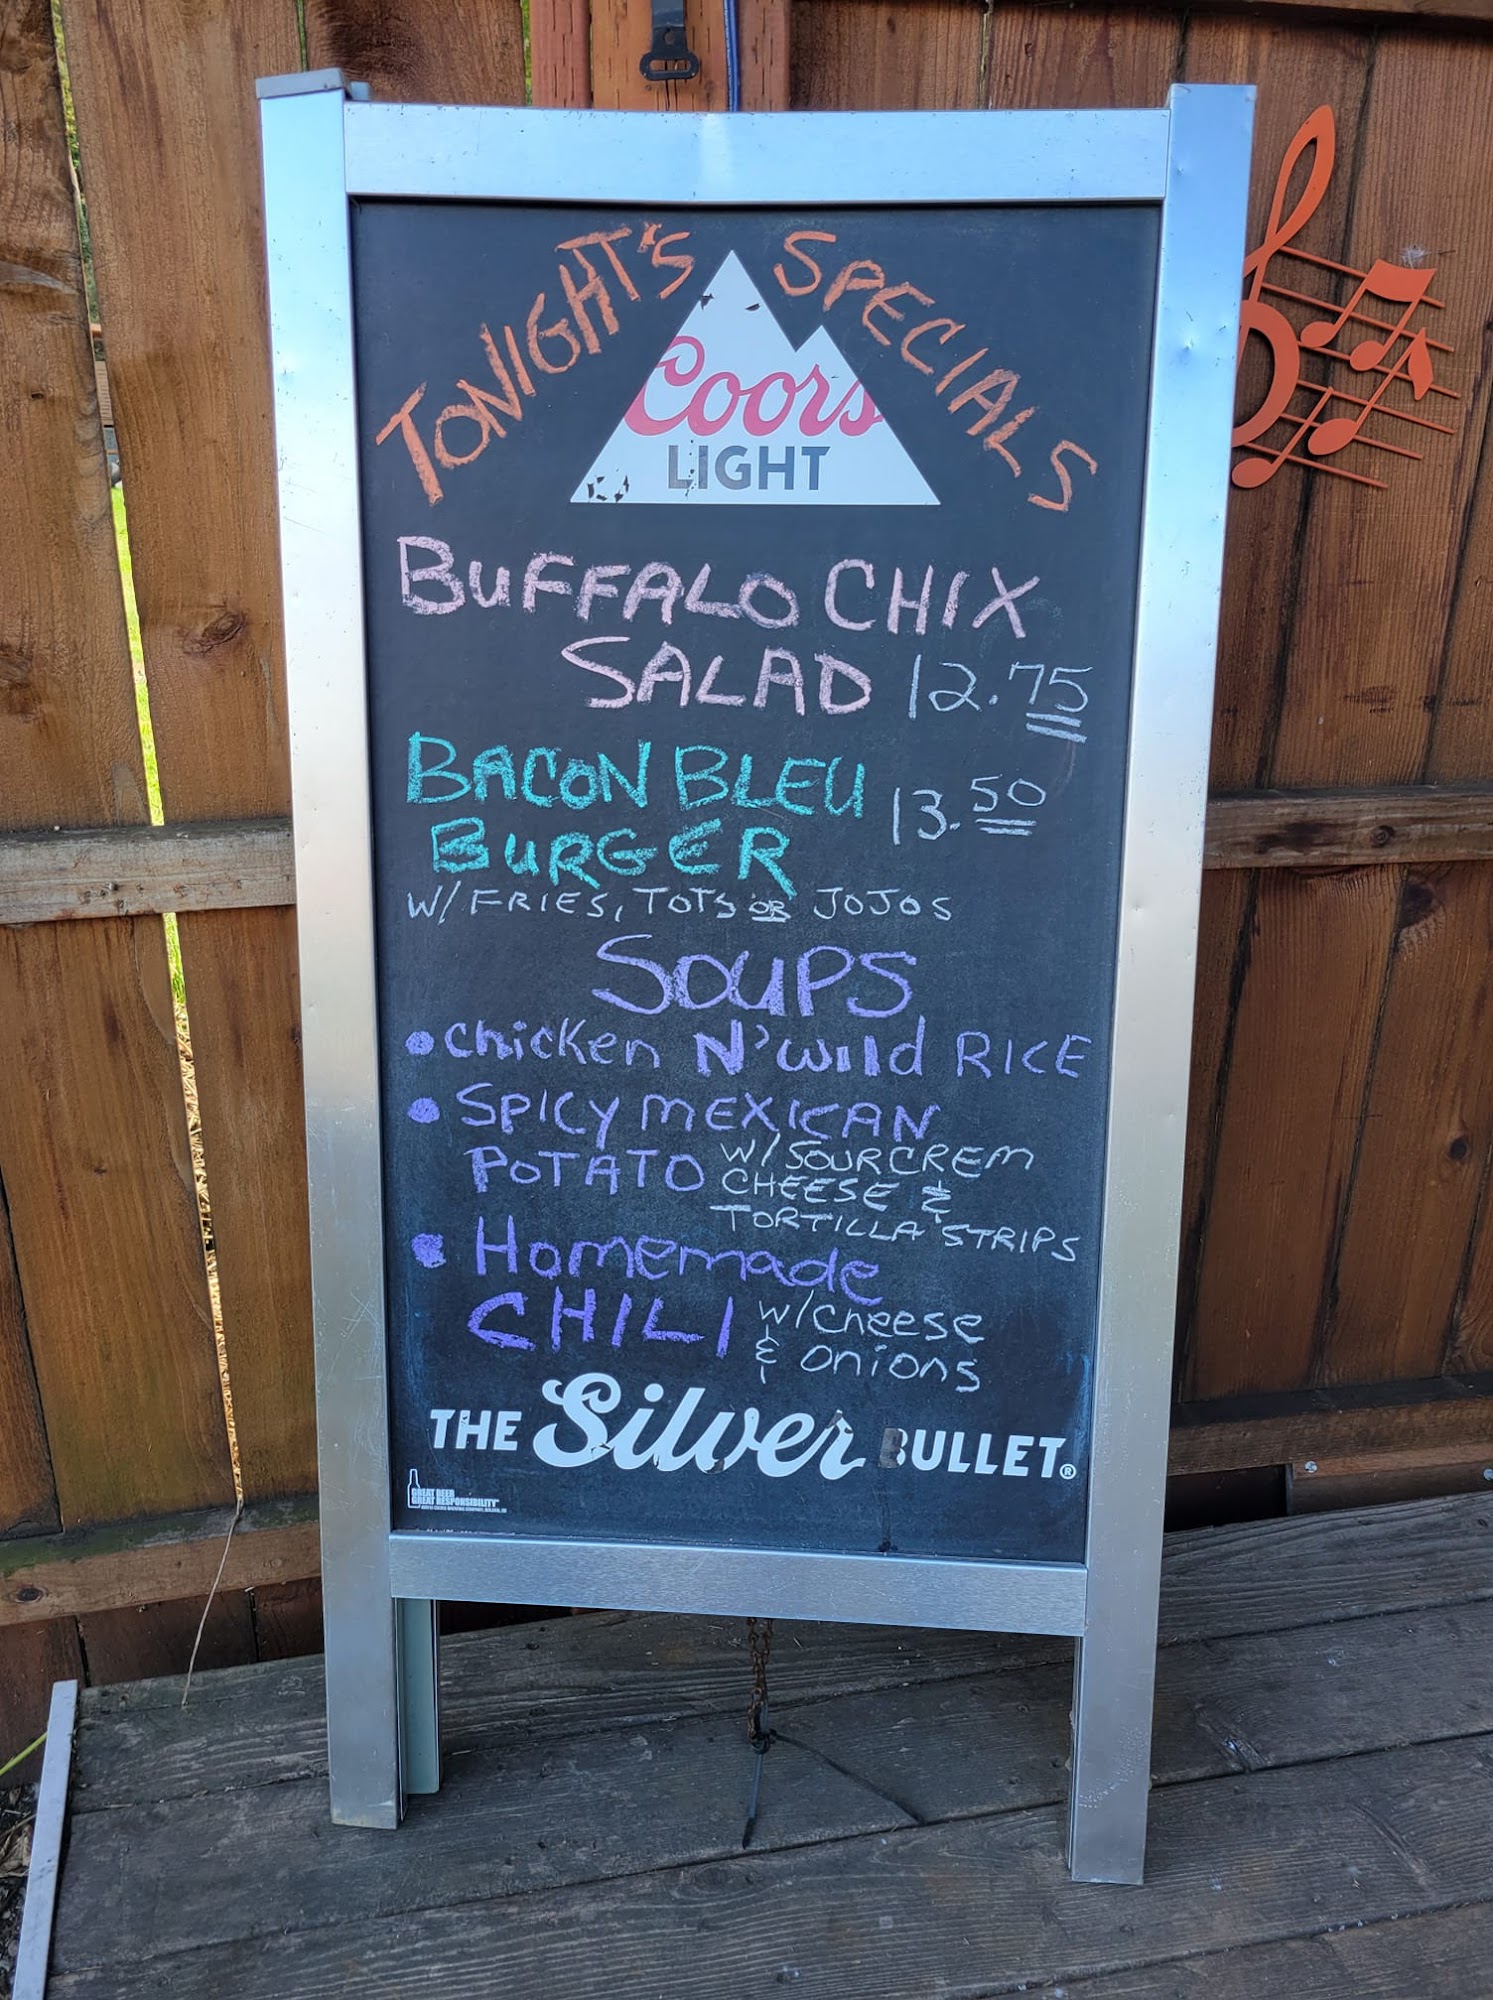 TONIGHT'S SPECIALS
Coors
LIGHT
BUFFALO CHIX
SALAD 12.75
BACON BLEU
BURGER 13.50
W/ FRIES, TOTS OR JOJOS
SOUPS
• Chicken N' Wild RICE
• SPICY MEXICAN
POTATO W/ SOURCREM
CHEESE &
TORTILLA STRIPS
• Homemade
CHILI w/ cheese
& onions
THE Silver BULLET®
GREAT BEER
GREAT RESPONSIBILITY™